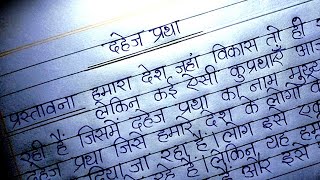 दहेज प्रथा
प्रस्तावना हमारा देश जहां विकास तो ही
रही हैं लेकिन कई ऐसी कुप्रथाएं आज
जिसमें दहेज प्रथा का नाम मुख्य
दहेज प्रथा जिसे हमारे देश के लोगों
दिया जा रहा है। लोग इसे एक
है। लेकिन यह हमा
और इसे